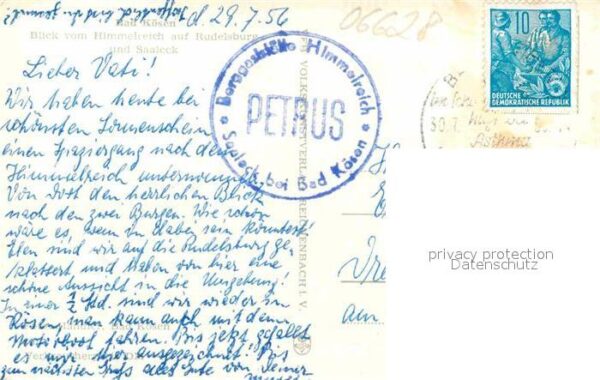 d 29.7.56
06628
Bad Kösen
Blick vom Himmelreich auf Rudelsburg
und Saaleck
Lieber Vati!
Wir haben heute bei
schönsten Sonnenschein
einen Spaziergang nach dem
Himmelreich unternommen.
Von dort den herrlichen Blick
nach den zwei Burgen. Wie schön
wäre es, wenn du dabei sein könntest!
Eben sind wir auf die Rudelsburg ge-
klettert und haben von hier eine
schöne Aussicht in die Umgebung!
In einer ½ Std. sind wir wieder in
Kösen, man kann auch mit dem
Motorboot fahren. Bis jetzt gefällt
es mir hier ausgezeichnet! Bis
zum nächsten alles Gute von Deiner
Berggaststätte Himmelreich
PETRUS
Saaleck bei Bad Kösen
VOLKSKUNSTVERLAG REICHENBACH I. V.
10
DEUTSCHE
DEMOKRATISCHE REPUBLIK
privacy protection
Datenschutz
am